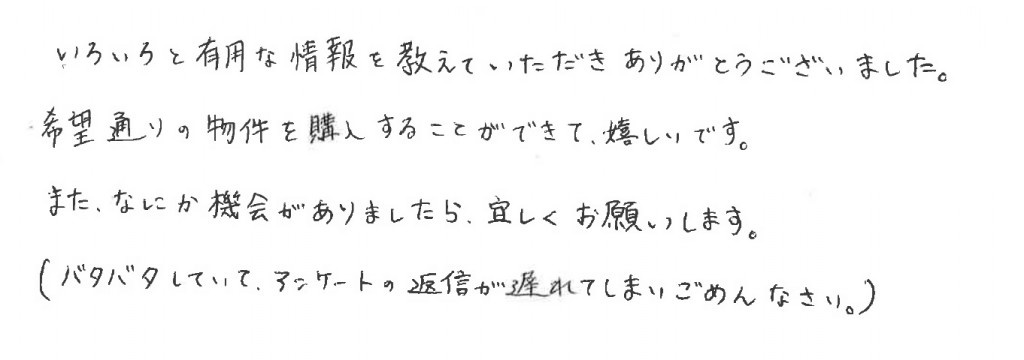 いろいろと有用な情報を教えていただきありがとうございました。
希望通りの物件を購入することができて、嬉しいです。
また、なにか機会がありましたら、宜しくお願いします。
(バタバタしていて、アンケートの返信が遅れてしまいごめんなさい。)